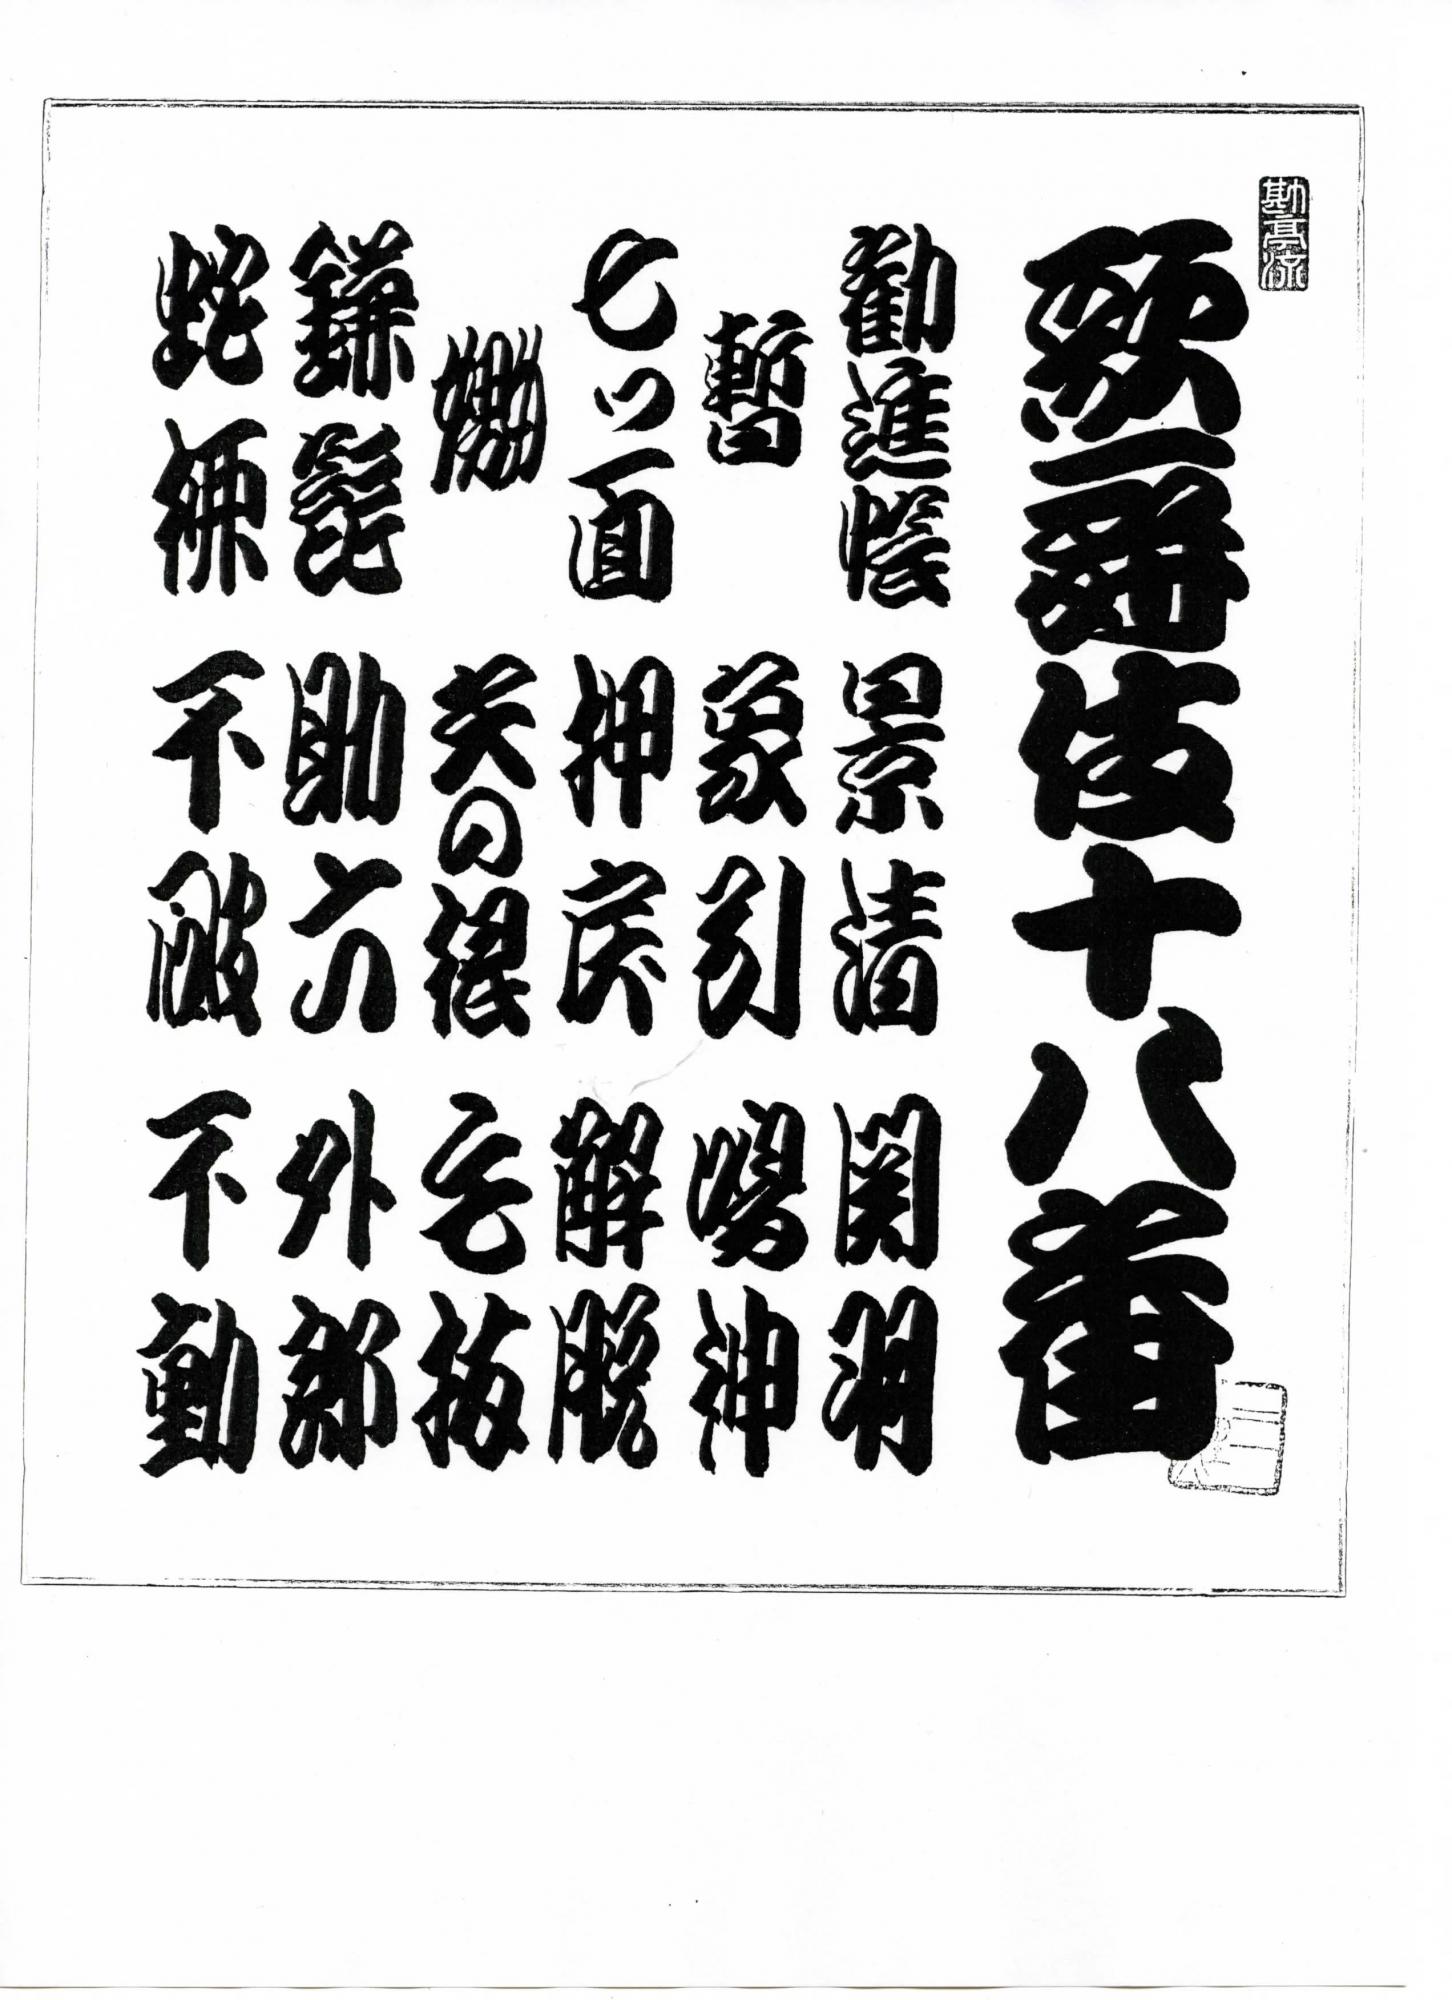 勘亭流
歌舞伎十八番
勧進帳 景清 関羽
暫 象引 鳴神
七ツ面 押戻 解脱
嫐 矢の根 毛抜
鎌髭 助六 外郎
蛇柳 不破 不動